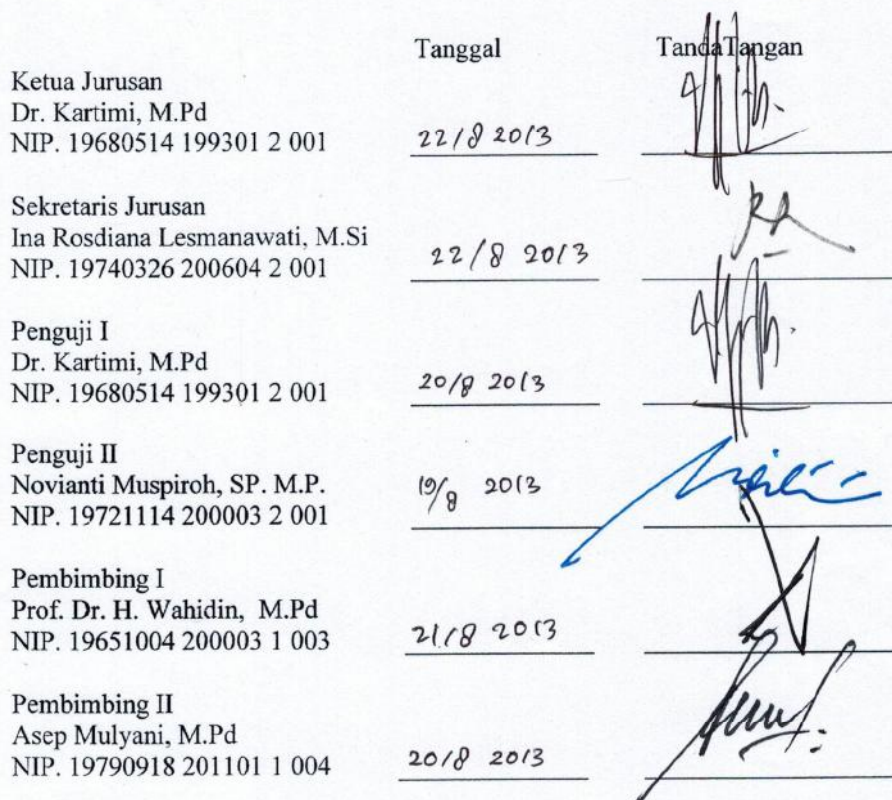 Tanggal TandaTangan
Ketua Jurusan
Dr. Kartimi, M.Pd
NIP. 19680514 199301 2 001 22/8 2013
Sekretaris Jurusan
Ina Rosdiana Lesmanawati, M.Si
NIP. 19740326 200604 2 001 22/8 2013
Penguji I
Dr. Kartimi, M.Pd
NIP. 19680514 199301 2 001 20/8 2013
Penguji II
Novianti Muspiroh, SP. M.P. 19/8 2013
NIP. 19721114 200003 2 001
Pembimbing I
Prof. Dr. H. Wahidin, M.Pd
NIP. 19651004 200003 1 003 21/8 2013
Pembimbing II
Asep Mulyani, M.Pd
NIP. 19790918 201101 1 004 20/8 2013